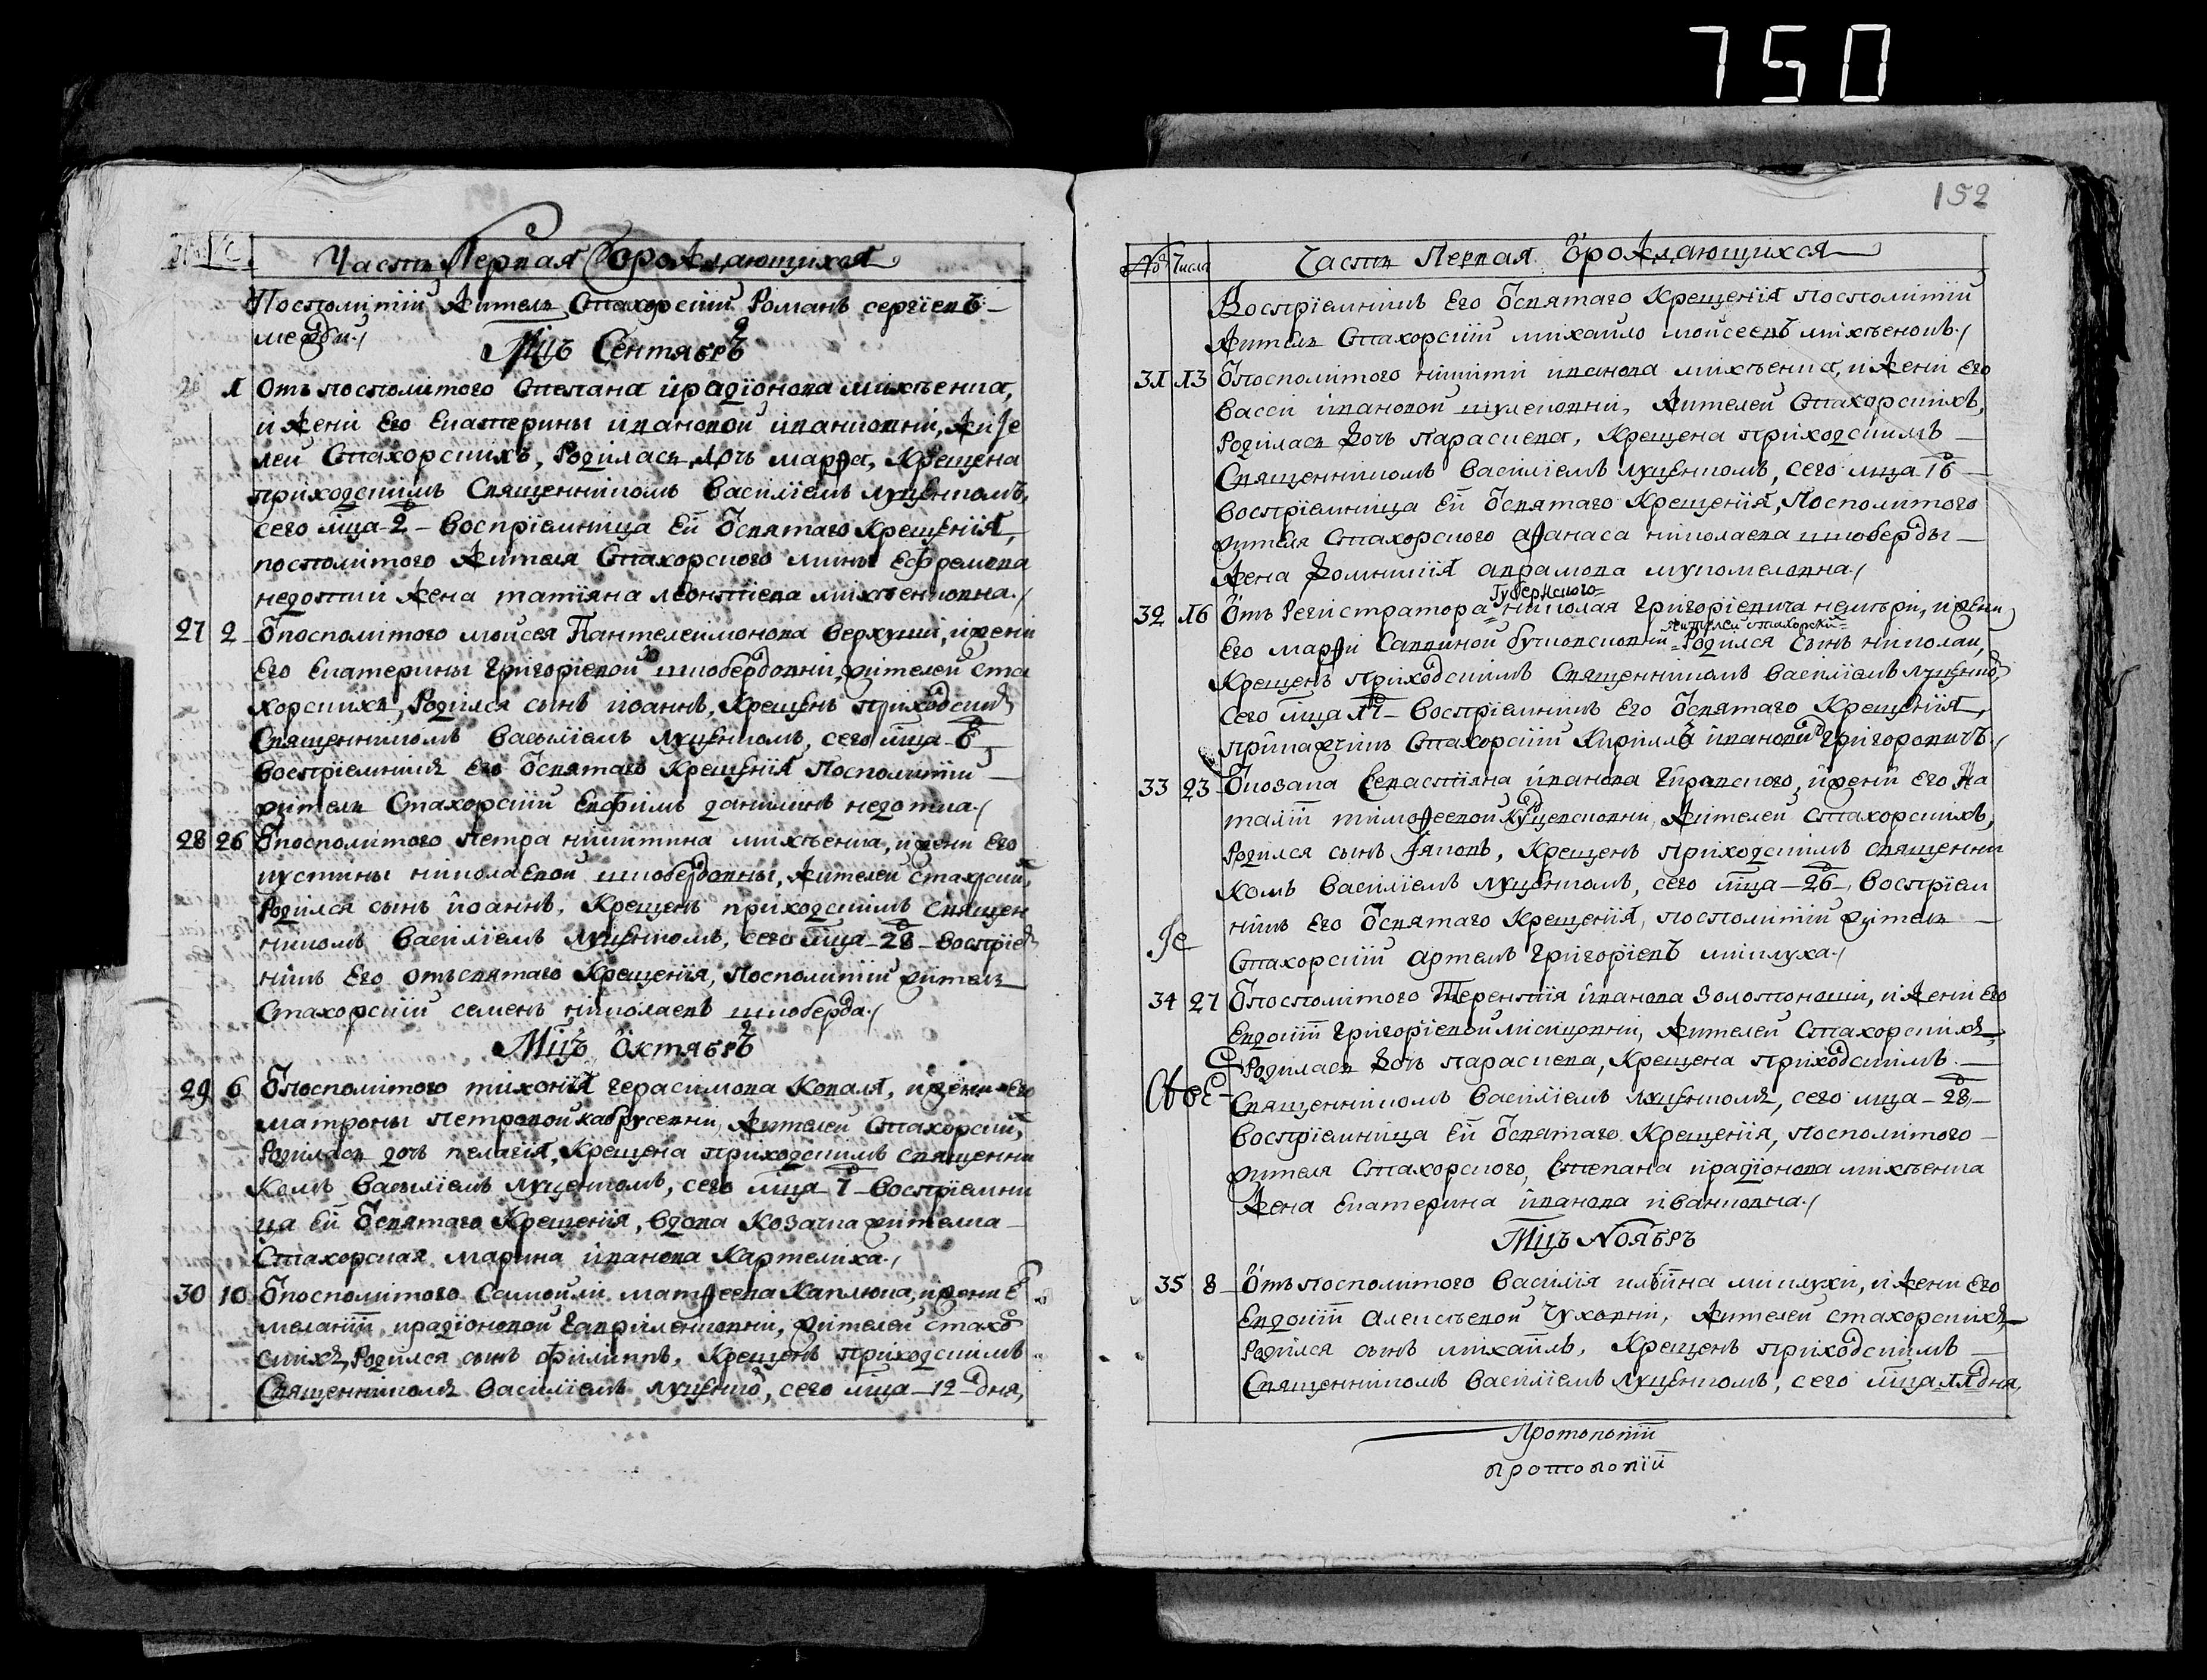 750
Часть Первая Ѡрождающихся
Посполитїй житель Стахорскїй Романъ сергїевъ
Мцъ Сентябръ
1 Отъ посполитого Степана ираdїонова михѣенка,
и жени Его Екатерины ивановой иванковни, жите
лей Стахорскихъ, Родилась дочь марѳа, Крещена
приходскимъ Священникомъ Василїемъ луценкомъ,
сего мца 2 воспрїемница Ей Ѿсвятаго Крещенїя,
посполитого жителя Стахорского мины Ефремова
недоткы жена татїяна леонтїева михѣенковна
27 2 Ѿпосполитого моисея Пантелеимонова верхуши, и жени
Его Екатерины Григорїевой шкобердовни, жителей Ста
хорскихъ, Родился сынъ иоаннъ, Крещенъ приходским
Священникомъ Василїемъ луценкомъ, сего мца 6
воспрїемникъ Его Ѿсвятаго Крещенїя Посполитїй
житель Стахорскїй Евфимъ данилинъ недотка
28 26 Ѿпосполитого Петра никитина михѣенка, и жени Его
иустины николаевой шкобердовны, жителей Стахрских,
Родился сынъ иоаннъ, Крещенъ приходскимъ Священ
никомъ Василїемъ луценкомъ, сего мца 28 воспрїем
никъ Его отъсвятаго Крещенїя, Посполитїй житель
Стахорскїй семенъ николаевъ шкоберда
Мцъ Ѡктябръ
29 6 Ѿпосполитого тихонїя герасимова Коваля, и жени Его
матроны Петровой хабрусевни, жителей Стахорских,
Родилась дочь пелагїя, Крещена приходскимъ священни
комъ Василїемъ луценкомъ, сего мца 7 воспрїемни
ца Ей Ѿсвятаго Крещенїя, вдова Козачка жителка
Стахорская марина иванова Картелиха
30 10 Ѿпосполитого Самойли матѳеева Каплюка, и жени Е
меланїи, ирадїоновой Гавриленковни, жителей Стахо
скихъ, Родился сынъ Филиппъ, Крещенъ приходскимъ
Священникомъ Василїемъ луценко, сего мца 12 дня,
152
№ Число Часть Первая Ѡрождающихся
Воспрїемникъ Его Ѿсвятаго Крещенїя посполитїй
житель Стахорскїй михайло мойсеевъ михѣенокъ
31 13 Ѿпосполитого никити иванова михѣенка, и жени Его
васси ивановой шулековни, жителей Стахорскихъ,
Родилась дочь Параскева, Крещена приходскимъ
Священникомъ Василїемъ луценкомъ, сего мца 16
воспрїемница Ей Ѿсвятаго Крещенїя, Посполитого
жителя Стахорского аѳанаса николаева шкоберды
жена Домникїя аврамова
32 16 Ѿтъ Регистратора Губернского николая Григорїевича, и жени
Его марѳи Саввиной жителей стахорских Родился Сынъ николай,
Крещенъ приходскимъ Священникомъ Василїемъ луценко
сего мца 17 воспрїемникъ Его Ѿсвятаго Крещенїя,
Стахорскїй Кириллъ ивановичъ Григоровичъ
33 23 Ѿкозака Севастїяна иванова, и жени Его На
талїи тимоѳеевой, жителей Стахорскихъ,
Родился сынъ Іяковъ, Крещенъ приходскимъ священни
комъ Василїемъ луценкомъ, сего мца 26 Воспрїем
никъ Его Ѿсвятаго Крещенїя, посполитїй житель
Стахорскїй артемъ Григорїевъ миклуха
34 27 Ѿпосполитого Терентїя иванова Золотоноши, и жени Его
Евдокїи Григорїевой, жителей Стахорскихъ,
Родилась дочь параскева, Крещена приходскимъ
Священникомъ Василїемъ луценкомъ, сего мца 28
воспрїемница Ей Ѿсвятаго Крещенїя, посполитого
жителя Стахорского, Степана ирадїонова михѣенка
жена Екатерина иванова иванковна
Мцъ Ноябръ
35 8 Ѿтъ посполитого Василїя ильина миклухи, и жени Его
Евдокїи алексѣевой Чуховни, жителей стахорскихъ
Родился сынъ михаилъ, Крещенъ приходскимъ
Священникомъ Василїемъ луценкомъ, сего мца 11 дня,
Протопопїи
протопопїи